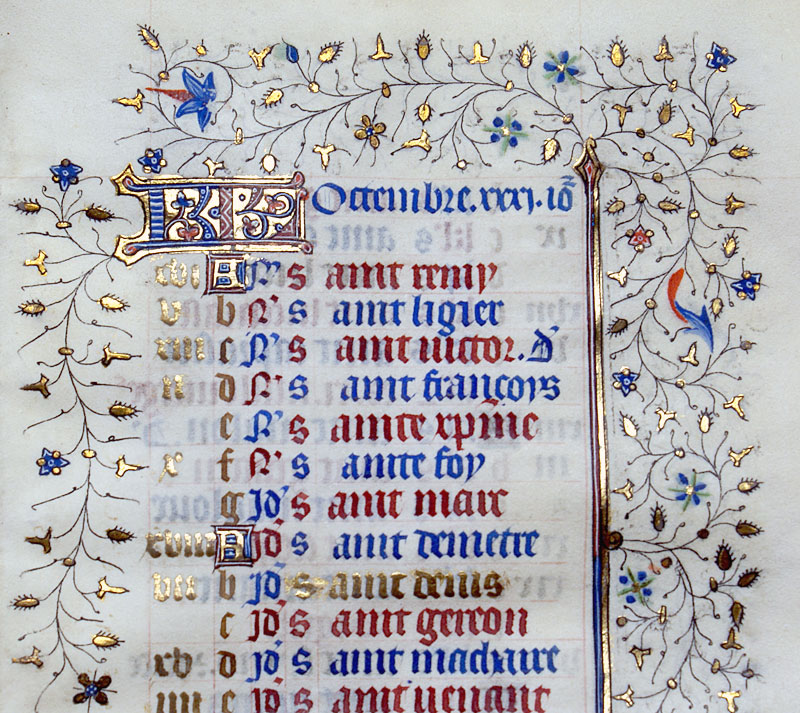 KL Octembre.xxxj.iō
xvi A N' s aint remy
v b N' s aint ligier
xiii c N' s aint victor. d'
ii d N' s aint françoys
e N' s ainte xp̄ine
x f N' s ainte foy
g Jd' s aint marc
xviii A Jd' s aint demetre
vii b Jd' s aint denis
c Jd' s aint gereon
xv d Jd' s aint machaire
iiii e Jd' s aint venant